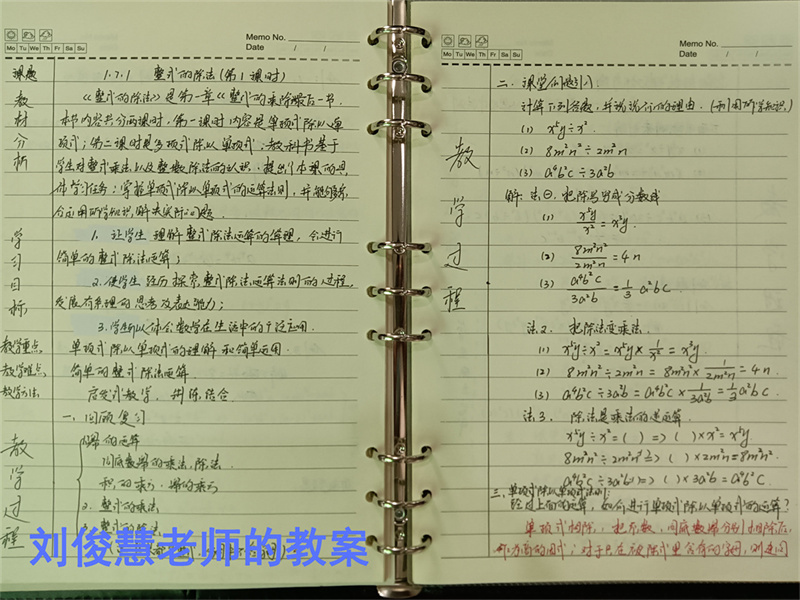 Memo No.
Mo Tu We Th Fr Sa Su
Date / /
课题 1.7.1 整式的除法(第1课时)
教材分析
《整式的除法》是第一章《整式的乘除》最后一节.
本节内容共分两课时,第一课时内容是单项式除以单
项式;第二课时是多项式除以单项式;教科书基于
学生对整式乘法以及整数除法的认识,提出了本课的具
体学习任务:掌握单项式除以单项式的运算法则,并能够综
合应用所学知识解决实际问题.
学习目标
1. 让学生理解整式除法运算的算理,会进行
简单的整式除法运算;
2. 使学生经历探索整式除法运算法则的过程,
发展有条理的思考及表达能力;
3. 学生可以体会数学在生活中的广泛应用.
教学重点 单项式除以单项式的理解和简单运用.
教学难点 简单的整式除法运算
教学方法 启发式教学,讲练结合
教学过程
一、回顾复习
幂的运算
同底数幂的乘法、除法.
积的乘方、幂的乘方
2. 整式的乘法
整式的除法
刘俊慧老师的教案
Memo No.
Mo Tu We Th Fr Sa Su
Date / /
教学过程
二、课堂问题引入:
计算下列各题,并说说你的理由.(利用所学知识)
(1) x⁵y÷x².
(2) 8m²n²÷2m²n
(3) a⁴b²c÷3a²b
解:法①. 把除写成分数或
(1) x⁵y/x² = x³y.
(2) 8m²n²/2m²n = 4n
(3) a⁴b²c/3a²b = 1/3 a²bc
法2. 把除法变乘法.
(1) x⁵y÷x² = x⁵y×1/x² = x³y.
(2) 8m²n²÷2m²n = 8m²n²×1/2m²n = 4n.
(3) a⁴b²c÷3a²b = a⁴b²c×1/3a²b = 1/3a²bc
法3. 除法是乘法的逆运算.
x⁵y÷x² = ( ) => ( )×x² = x⁵y.
8m²n²÷2m²n => ( )×2m²n = 8m²n².
a⁴b²c÷3a²b => ( )×3a²b = a⁴b²c.
三、单项式除以单项式法则:
经过上面的运算,如何进行单项式除以单项式的运算?
单项式相除,把系数、同底数幂分别相除后,
作为商的因式;对于只在被除式里含有的字母,则连同